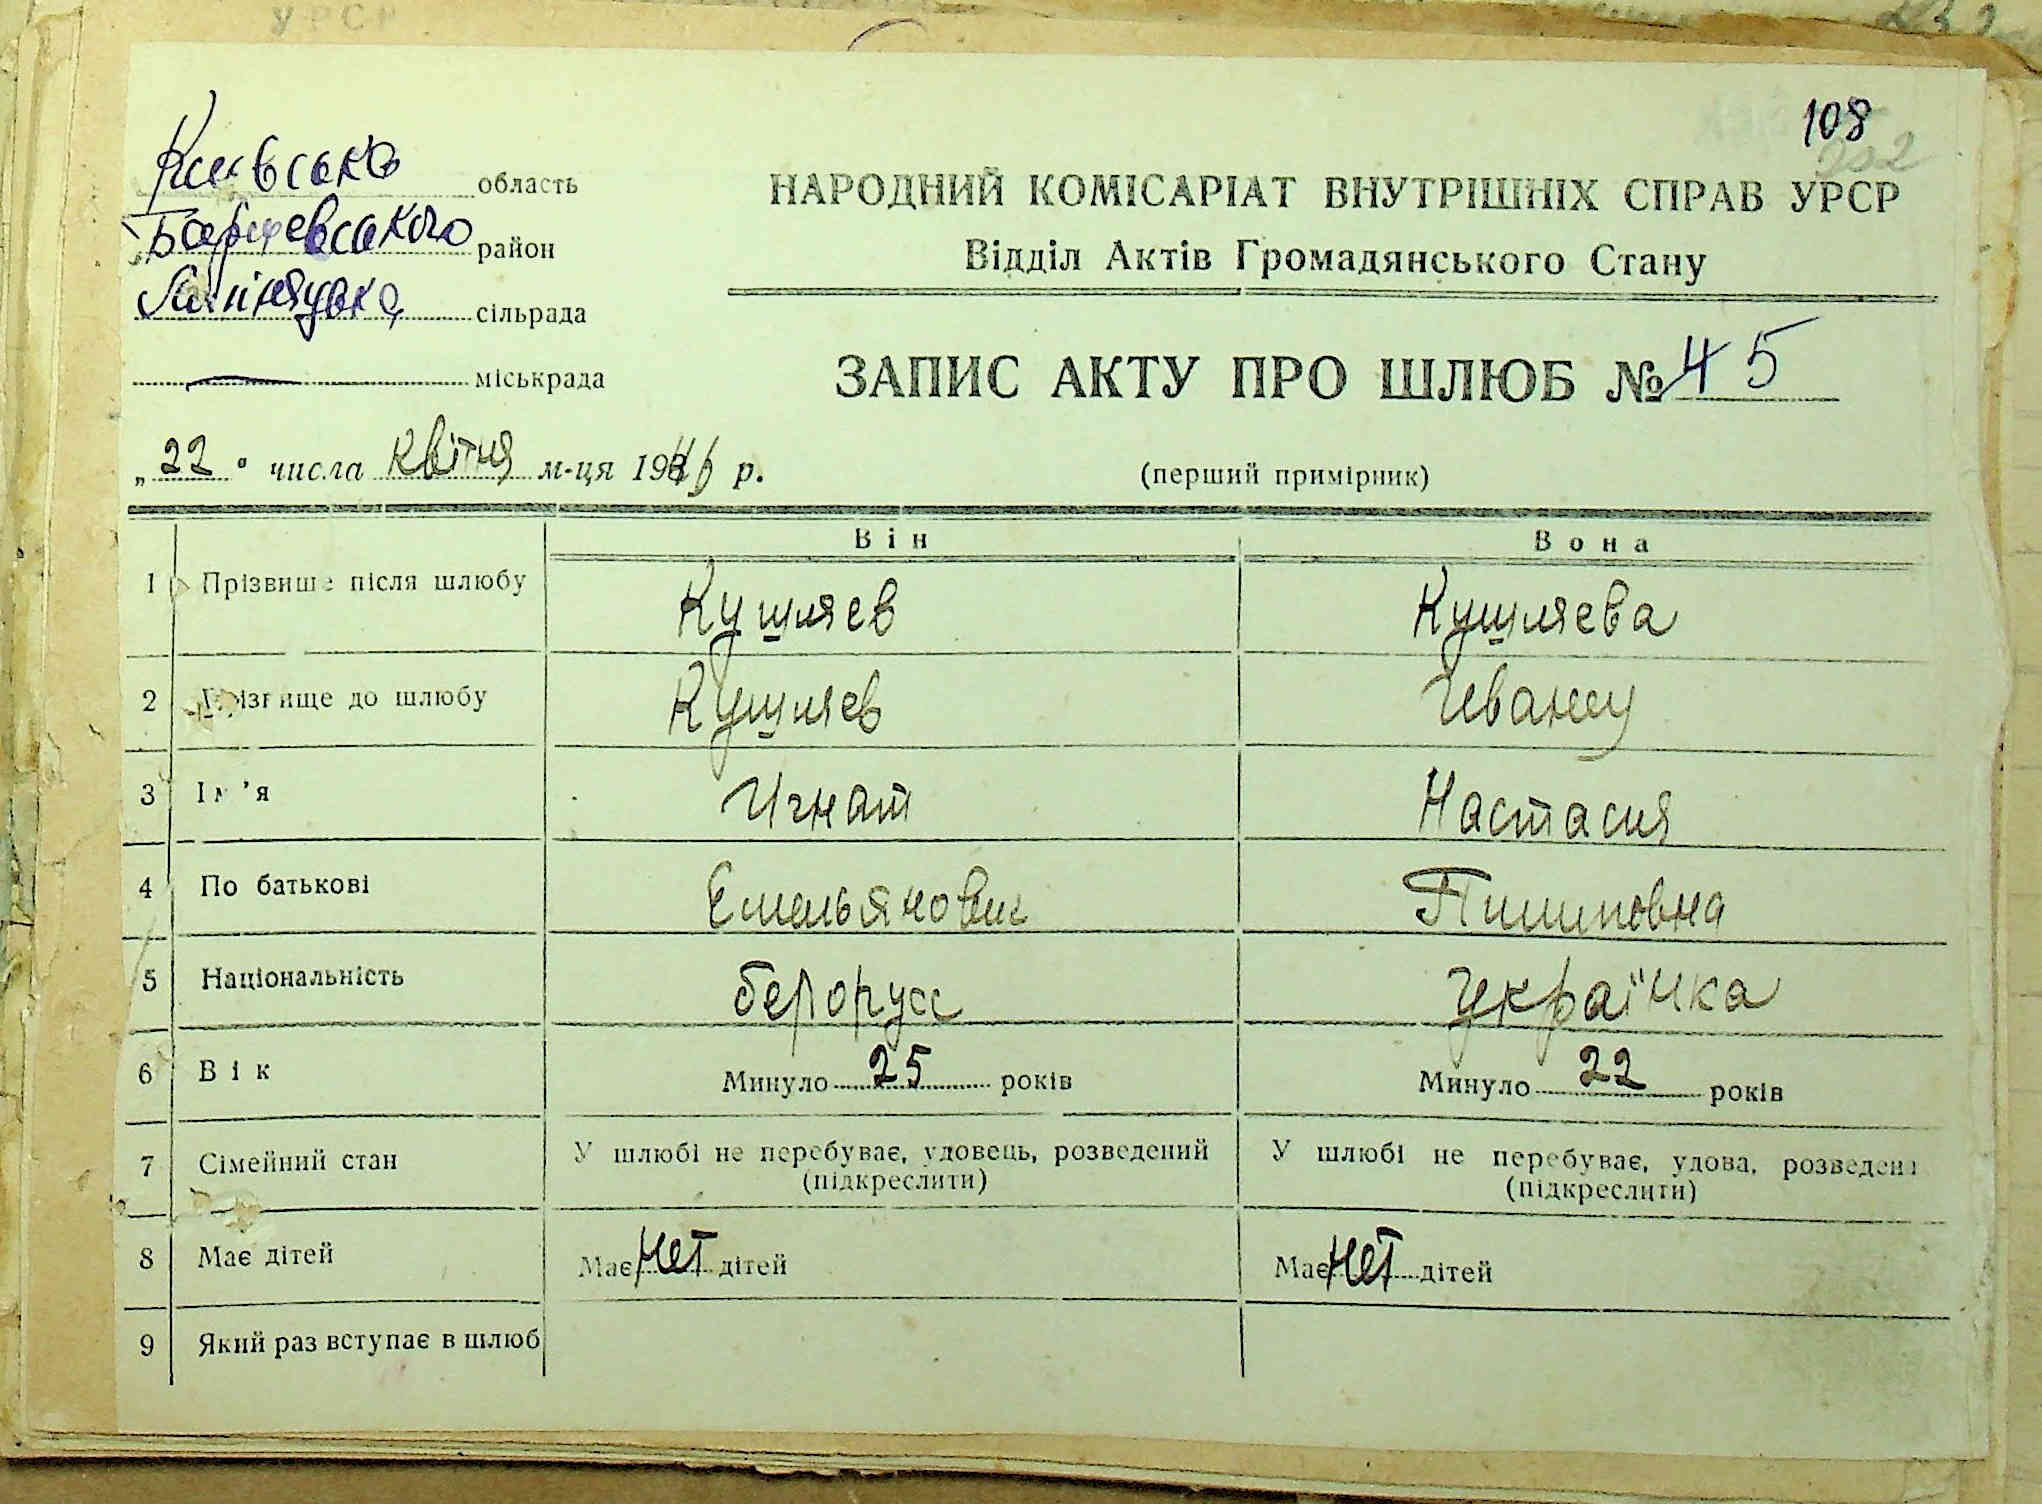 УРСР
108
202
Київська область
Баришевського район
сільрада
міськрада
НАРОДНИЙ КОМІСАРІАТ ВНУТРІШНІХ СПРАВ УРСР
Відділ Актів Громадянського Стану
ЗАПИС АКТУ ПРО ШЛЮБ № 45
„22" числа квітня м-ця 194 р.
(перший примірник)
Він Вона
1 Прізвище після шлюбу Кущляев Кущляева
2 Прізвище до шлюбу Кущляев
3 Ім'я Игнат Настасия
4 По батькові Емельянович Пилиповна
5 Національність белорусс Українка
6 Вік Минуло 25 років Минуло 22 років
7 Сімейний стан У шлюбі не перебуває, удовець, розведений У шлюбі не перебуває, удова, розведена
(підкреслити) (підкреслити)
8 Має дітей Має нет дітей Має нет дітей
9 Який раз вступає в шлюб